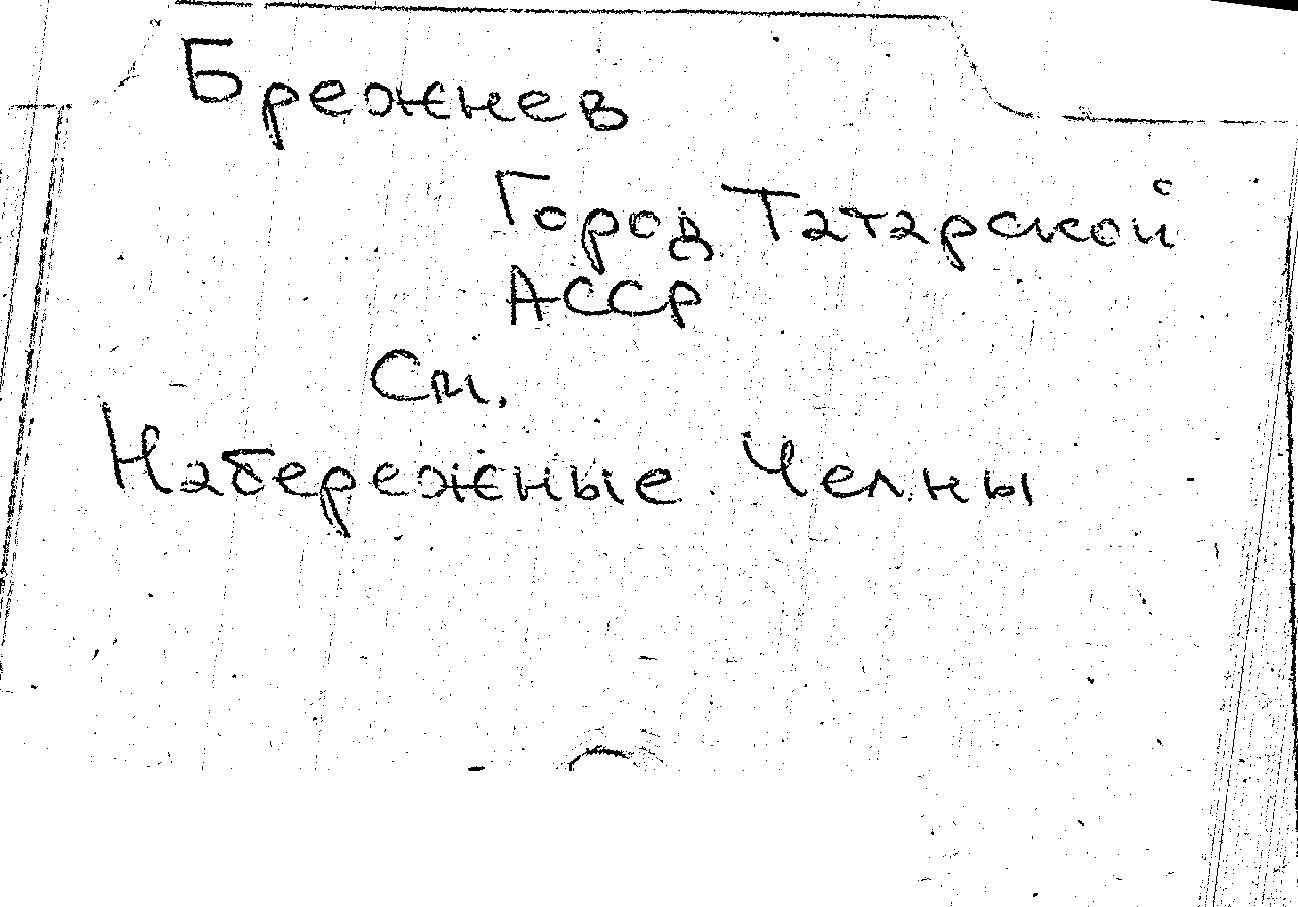 Брежнев
Город Татарской
АССР
См.
Набережные Челны